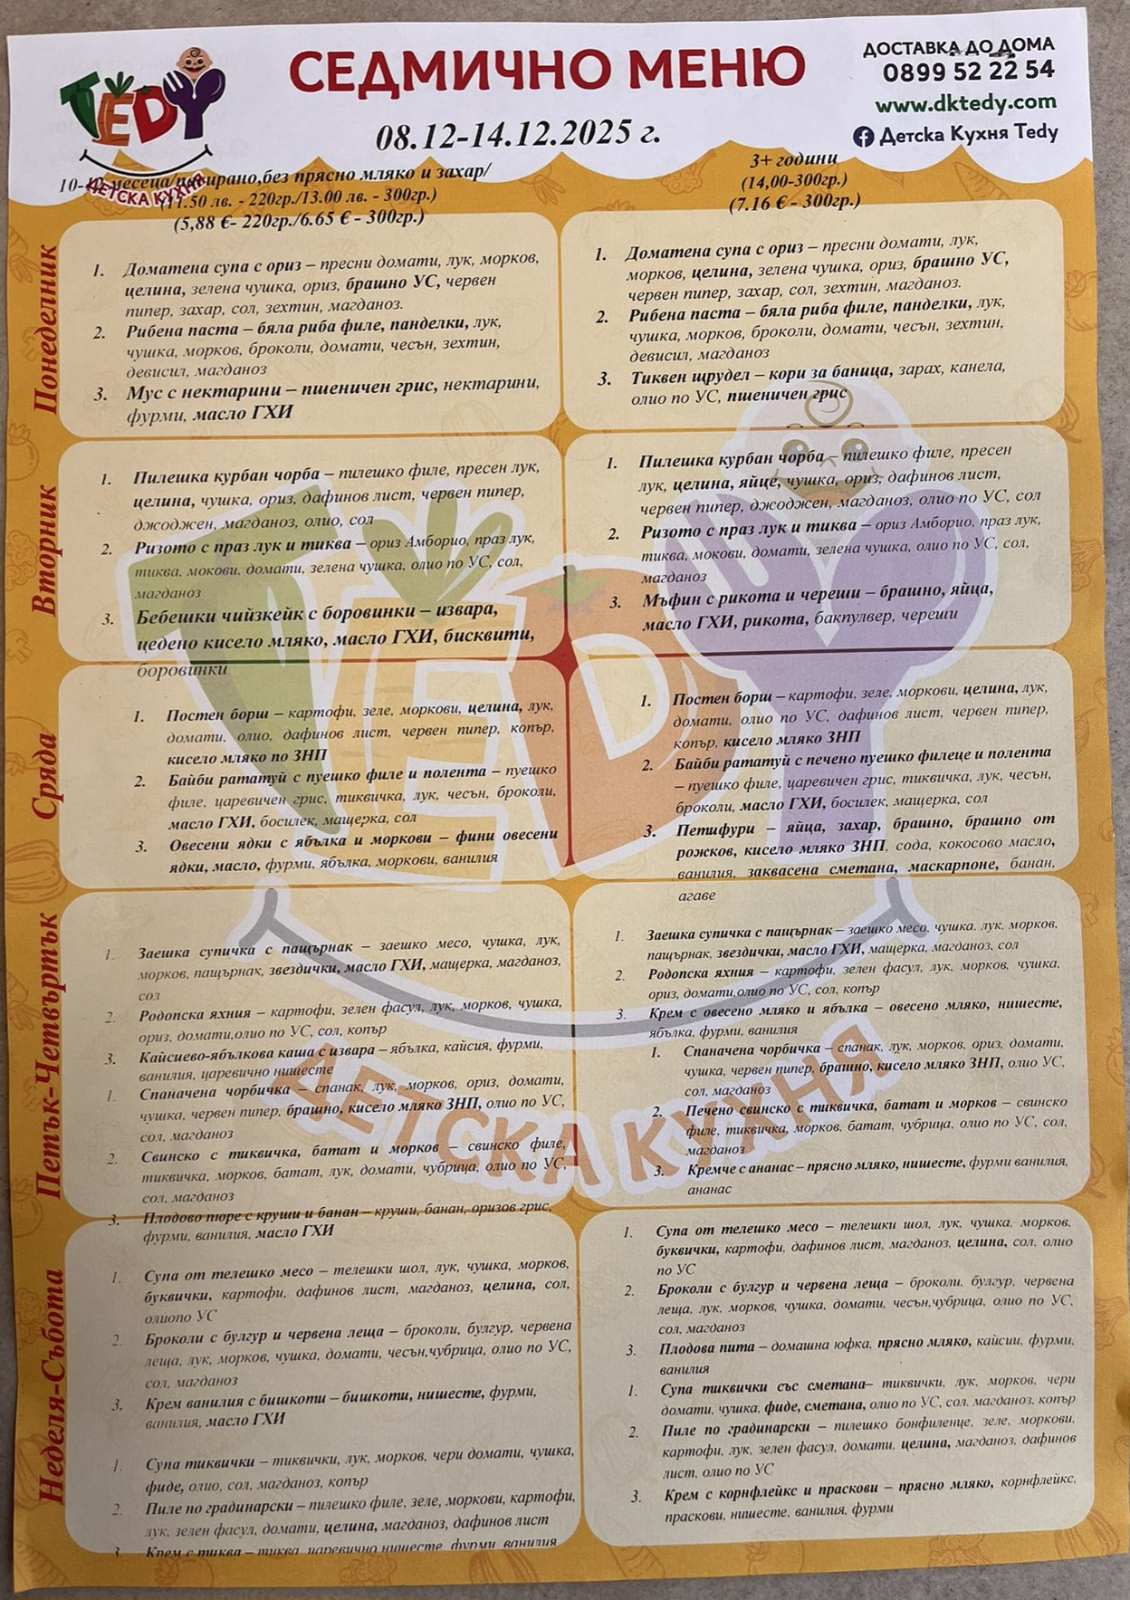 TEDY
ДЕТСКА КУХНЯ
СЕДМИЧНО МЕНЮ
08.12-14.12.2025 г.
ДОСТАВКА ДО ДОМА
0899 52 22 54
www.dktedy.com
Детска Кухня Tedy
месеца/пасирано,без прясно мляко и захар/
(11.50 лв. - 220гр./13.00 лв. - 300гр.)
(5,88 €- 220гр./6.65 € - 300гр.)
3+ години
(14,00-300гр.)
(7.16 € - 300гр.)
Понеделник
1. Доматена супа с ориз – пресни домати, лук, морков,
целина, зелена чушка, ориз, брашно УС, червен
пипер, захар, сол, зехтин, магданоз.
2. Рибена паста – бяла риба филе, панделки, лук,
чушка, морков, броколи, домати, чесън, зехтин,
девисил, магданоз
3. Мус с нектарини – пшеничен грис, нектарини,
фурми, масло ГХИ
1. Доматена супа с ориз – пресни домати, лук,
морков, целина, зелена чушка, ориз, брашно УС,
червен пипер, захар, сол, зехтин, магданоз.
2. Рибена паста – бяла риба филе, панделки, лук,
чушка, морков, броколи, домати, чесън, зехтин,
девисил, магданоз
3. Тиквен щрудел – кори за баница, зарах, канела,
олио по УС, пшеничен грис
Вторник
1. Пилешка курбан чорба – пилешко филе, пресен лук,
целина, чушка, ориз, дафинов лист, червен пипер,
джоджен, магданоз, олио, сол
2. Ризото с праз лук и тиква – ориз Амборио, праз лук,
тиква, мокови, домати, зелена чушка, олио по УС, сол,
магданоз
3. Бебешки чийзкейк с боровинки – извара,
цедено кисело мляко, масло ГХИ, бисквити,
боровинки
1. Пилешка курбан чорба – пилешко филе, пресен
лук, целина, яйце, чушка, ориз, дафинов лист,
червен пипер, джоджен, магданоз, олио по УС, сол
2. Ризото с праз лук и тиква – ориз Амборио, праз лук,
тиква, мокови, домати, зелена чушка, олио по УС, сол,
магданоз
3. Мъфин с рикота и череши – брашно, яйца,
масло ГХИ, рикота, бакпулвер, череши
Сряда
1. Постен борш – картофи, зеле, моркови, целина, лук,
домати, олио, дафинов лист, червен пипер, копър,
кисело мляко по ЗНП
2. Байби рататуй с пуешко филе и полента – пуешко
филе, царевичен грис, тиквичка, лук, чесън, броколи,
масло ГХИ, босилек, мащерка, сол
3. Овесени ядки с ябълка и моркови – фини овесени
ядки, масло, фурми, ябълка, моркови, ванилия
1. Постен борш – картофи, зеле, моркови, целина, лук,
домати, олио по УС, дафинов лист, червен пипер,
копър, кисело мляко ЗНП
2. Байби рататуй с печено пуешко филеце и полента
– пуешко филе, царевичен грис, тиквичка, лук, чесън,
броколи, масло ГХИ, босилек, мащерка, сол
3. Петифури – яйца, захар, брашно, брашно от
рожков, кисело мляко ЗНП, сода, кокосово масло,
ванилия, заквасена сметана, маскарпоне, банан,
агаве
Петък-Четвъртък
1. Заешка супичка с пащърнак – заешко месо, чушка, лук,
морков, пащърнак, звездички, масло ГХИ, мащерка, магданоз,
сол
2. Родопска яхния – картофи, зелен фасул, лук, морков, чушка,
ориз, домати,олио по УС, сол, копър
3. Кайсиево-ябълкова каша с извара – ябълка, кайсия, фурми,
ванилия, царевично нишесте
1. Спаначена чорбичка – спанак, лук, морков, ориз, домати,
чушка, червен пипер, брашно, кисело мляко ЗНП, олио по УС,
сол, магданоз
2. Свинско с тиквичка, батат и морков – свинско филе,
тиквичка, морков, батат, лук, домати, чубрица, олио по УС,
сол, магданоз
3. Плодово пюре с круши и банан – круши, банан, оризов грис,
фурми, ванилия, масло ГХИ
1. Заешка супичка с пащърнак – заешко месо, чушка, лук, морков,
пащърнак, звездички, масло ГХИ, мащерка, магданоз, сол
2. Родопска яхния – картофи, зелен фасул, лук, морков, чушка,
ориз, домати,олио по УС, сол, копър
3. Крем с овесено мляко и ябълка – овесено мляко, нишесте,
ябълка, фурми, ванилия
1. Спаначена чорбичка – спанак, лук, морков, ориз, домати,
чушка, червен пипер, брашно, кисело мляко ЗНП, олио по УС,
сол, магданоз
2. Печено свинско с тиквичка, батат и морков – свинско
филе, тиквичка, морков, батат, чубрица, олио по УС, сол,
магданоз
3. Кремче с ананас – прясно мляко, нишесте, фурми ванилия,
ананас
Неделя-Събота
1. Супа от телешко месо – телешки шол, лук, чушка, морков,
буквички, картофи, дафинов лист, магданоз, целина, сол,
олиопо УС
2. Броколи с булгур и червена леща – броколи, булгур, червена
леща, лук, морков, чушка, домати, чесън,чубрица, олио по УС,
сол, магданоз
3. Крем ванилия с бишкоти – бишкоти, нишесте, фурми,
ванилия, масло ГХИ
1. Супа тиквички – тиквички, лук, морков, чери домати, чушка,
фиде, олио, сол, магданоз, копър
2. Пиле по градинарски – пилешко филе, зеле, моркови, картофи,
лук, зелен фасул, домати, целина, магданоз, дафинов лист
3. Крем с тиква – тиква, царевично нишесте, фурми, ванилия
1. Супа от телешко месо – телешки шол, лук, чушка, морков,
буквички, картофи, дафинов лист, магданоз, целина, сол, олио
по УС
2. Броколи с булгур и червена леща – броколи, булгур, червена
леща, лук, морков, чушка, домати, чесън,чубрица, олио по УС,
сол, магданоз
3. Плодова пита – домашна юфка, прясно мляко, кайсии, фурми,
ванилия
1. Супа тиквички със сметана– тиквички, лук, морков, чери
домати, чушка, фиде, сметана, олио по УС, сол, магданоз, копър
2. Пиле по градинарски – пилешко бонфиленце, зеле, моркови,
картофи, лук, зелен фасул, домати, целина, магданоз, дафинов
лист, олио по УС
3. Крем с корнфлейкс и праскови – прясно мляко, корнфлейкс,
праскови, нишесте, ванилия, фурми
TEDY
ДЕТСКА КУХНЯ